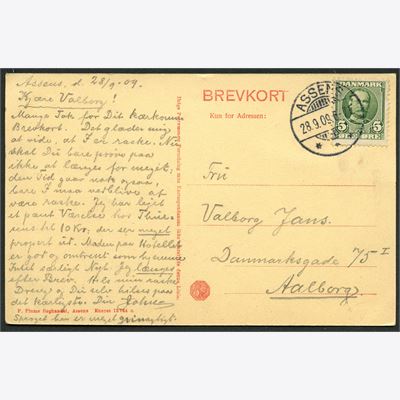 Assens d. 28/9-09.
Kjære Valborg!
Mange Tak for Dit kærkomne
Brevkort. Det glæder mig
at vide, at I er raske. Nu
skal Du bare passe paa
ikke at længes for meget,
den Tid gaar nok ogsaa,
bare I maa vedblive at
være raske. Jeg har lejet
et pænt Værelse hos
til 10 Kr, der ser meget
propert ud. Maden paa Hotellet
er god og omtrent som hjemme
Intet særligt Nyt. Jeg længes
efter Brev. Hils min raske
Dreng og Du selv hilses paa
det kærligste. Din
Sproget her er meget
P. Plums Boghandel, Assens
BREVKORT
Kun for Adressen:
ASSENS
28.9.09
DANMARK
5 ØRE 5
Fru
Valborg Jans.
Danmarksgade 75 I
Aalborg